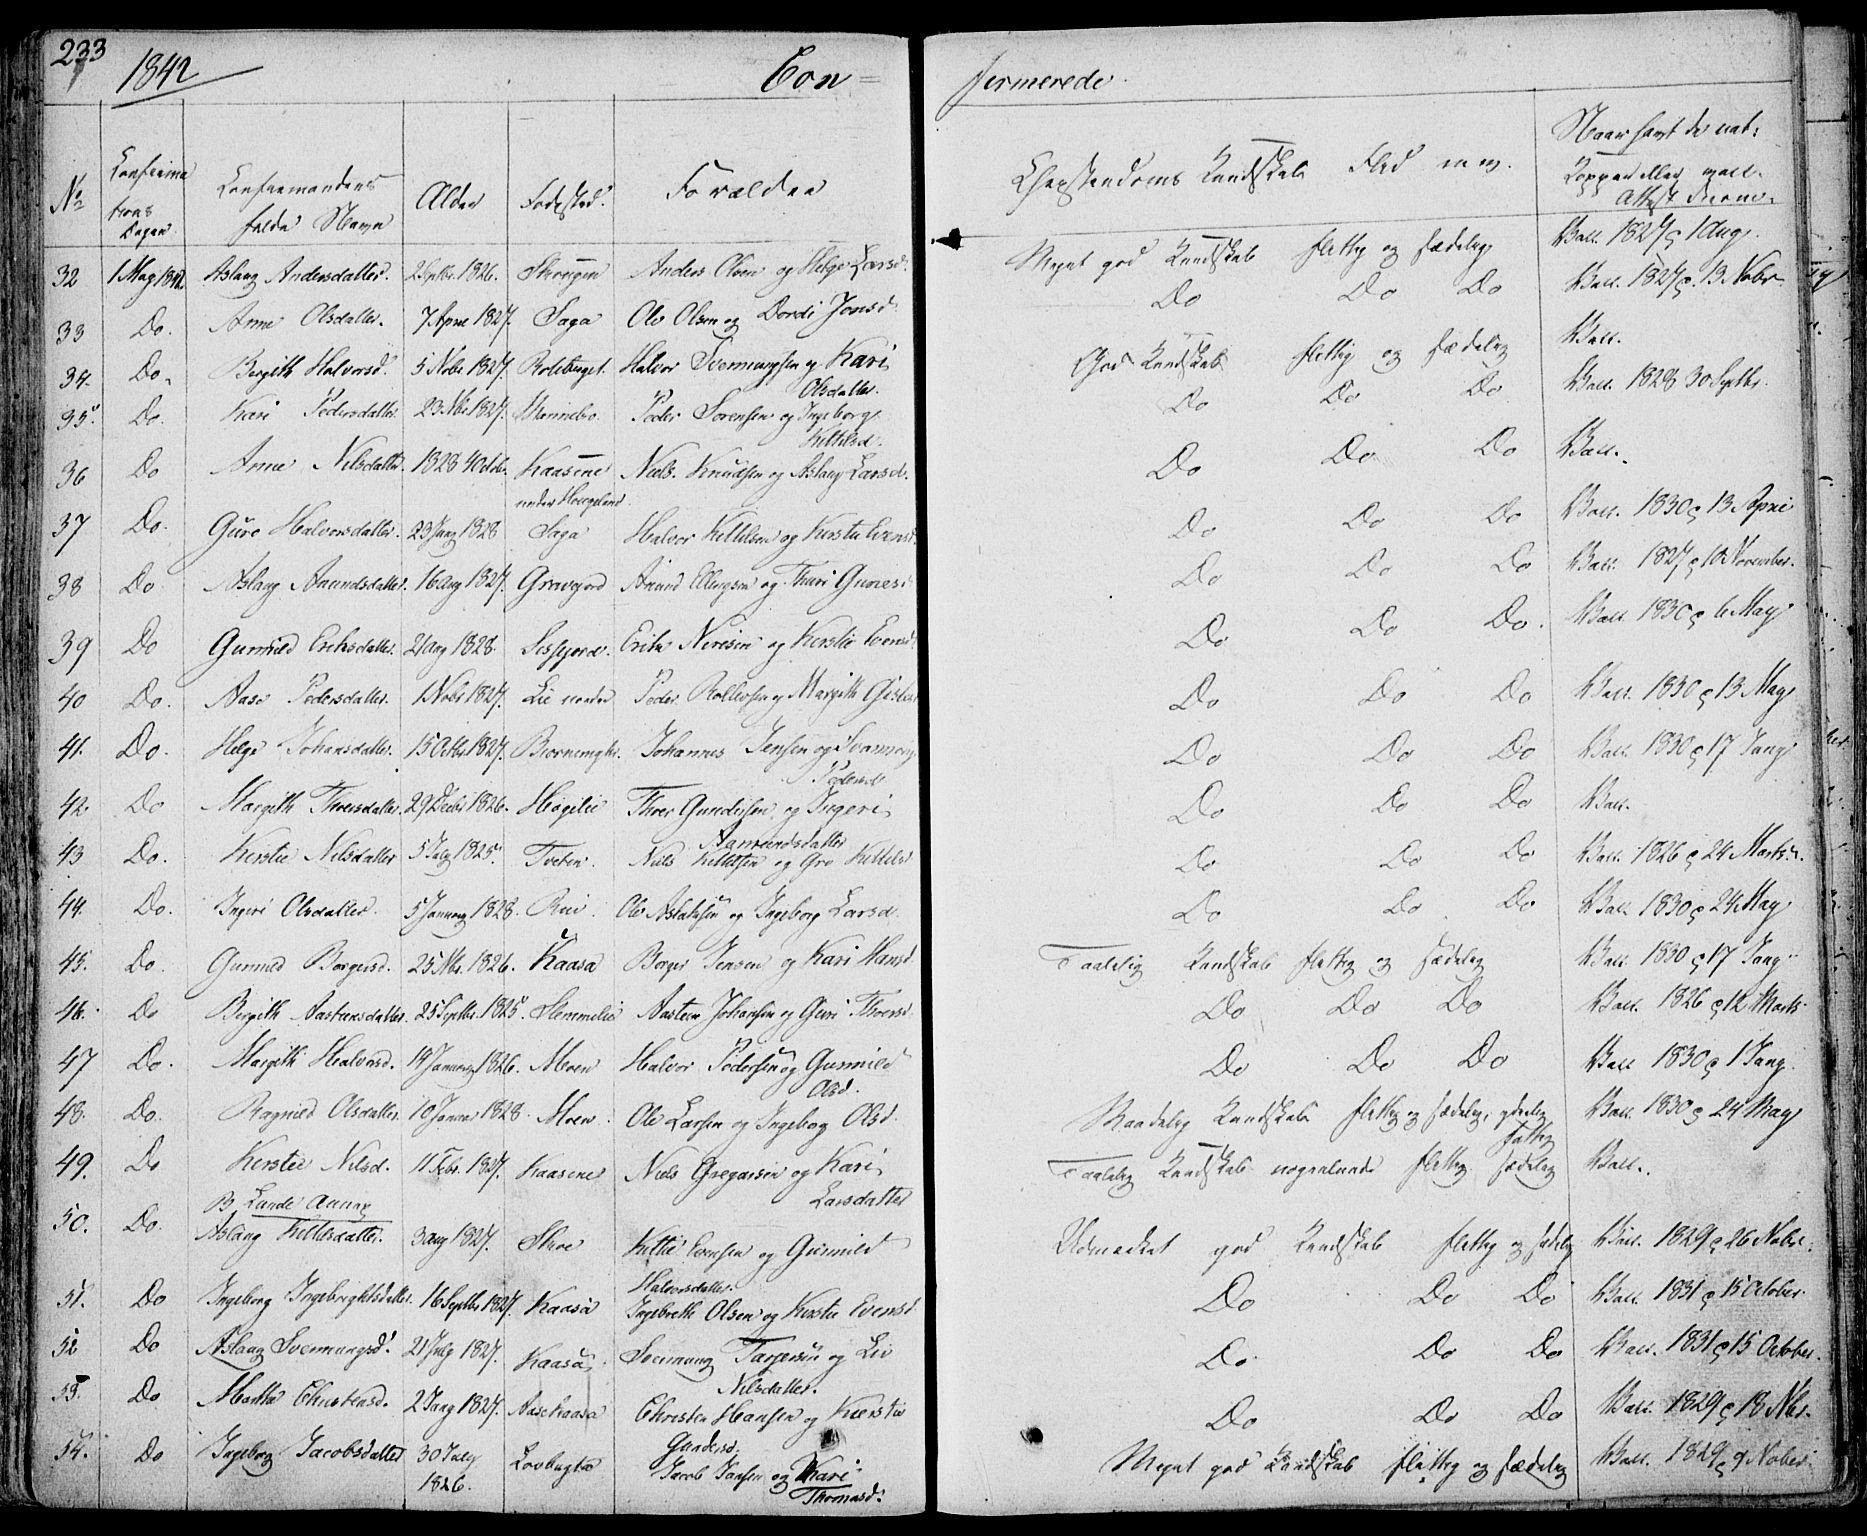 233
1842
Con=
firmerede
No
Confirma
tions
Dagen
Confirmandens
fulde Navn
Alder
Fødested.
Forældre
Christendoms Kundskab Flid m. m.
Naar havt de nat:
Kopper eller vacc.
Attest derom.
32 1 May 1842. Aslaug Andersdatter. 2 Septbr 1826. Anders Olsen og Helge Larsd. Meget god Kundskab flittig og sædelig Vacc. 1827 1 Aug.
33 Do. Anne Olsdatter. 7 Apr 1827. Saga Ole Olsen og Dordi Jonsd. Do Do Do Vacc. 1827 13 Novbr
34. Do. Birgith Halvorsd. 5 Nobr 1827. Halvor Svennungsen og Kari
Olsdatter. God Kundskab flittig og sædelig Vacc.
35. Do. Kari Pedersdatter 23 1827. Peder Sørensen og Ingeborg
Kittilsd. Do Do Do Vacc. 1828 30 Septbr.
36 Do Anne Nilsdatter. 1828 4 Octob. Kaasene
under Nils Knudsen og Aslaug Larsd. Do Do Do Vacc.
37 Do. Guro Halvorsdatter. 23 1828 Saga Halvor Kittilsen og Kirstie Evensd. Do Do Do Vacc. 1830 13 April
38 Do Aslaug Amundsdatter. 16 aug 1827. Gravejord Amund Ellingsen og Thuri Do Do Do Vacc. 1827 10 November.
39 Do Gunnild Eriksdatter. 21 aug 1828. Erik og Kirstie Evensd Do Do Do. Vacc. 1830 6 May
40 Do. Aase Pedersdatter. 1 Nobr 1827. Lie Peder Rollefsen og Margith Do Do Do Vacc. 1830 13 May
41. Do. Helge Johansdatter. 15 Octbr 1827. Johannes Jensen og
Pedersd Do Do Do Vacc. 1830 17
42. Do Margith Thoersdatter. 29 Decbr 1826. Høgelie Thoer og Ingeri
Aamundsdatter Do Do Do Vacc.
43 Do. Kirstie Nilsdatter 5 July 1825. Tveten. Nils Kittilsen og Gro Kittilsd Do Do Do Vacc. 1826 24 Marts.
44. Do. Ingeri Olsdatter. 5 January 1828. Rui. Ole Aslaksen og Ingeborg Larsd. Do Do Do Vacc. 1830 24 May
45. Do. Gunnild Borgersd. 25 1826. Kaasa Borger Jensen og Kari Hansd. Taalelig Kundskab flittig og sædelig Vacc. 1830 17
46. Do Birgith Aasteensdatter. 25 Septbr. 1825. Aasteen Johansen og Guri Thoersd. Do Do Do Vacc. 1826 12 Marts
47 Do. Margith Halvorsd. 14 January 1826. Moen Halvor Pedersen og Gunnild
Olsd. Do Do Do Vacc 1830 1
48. Do. Ragnild Olsdatter. 10 1828. Moen. Ole Larsen og Ingeborg Olsd. Maadelig Kundskab flittig og sædelig,
fattig Vacc. 1830 24 May
49. Do Kirstie Nilsd. 11 Febr. 1827. Kaasene Niels Gregarsen og Kari
Larsdatter Taalelig Kundskab nogenlunde flittig sædelig Vacc.
50. Do.
Aslaug Kittilsdatter. 3 aug 1827. Skoe Kittil Evensen og Gunnild
Halvorsdatter. Udmærket god Kundskab flittig og sædelig Vacc. 1829 26 Nobr.
51. Do Ingeborg Ingebrightsdatter. 16 Septbr 1827. Kaasa Ingebreth Olsen og Kirstie Evensd Do Do Do Vacc. 1831 15 October.
52 Do Aslaug Svennungsd. 21 July 1827. Kaasa Svennung Tarjersen og Liv
Nilsdatter. Do Do Do Vacc. 1831 15 October.
53. Do Martha Christensd. 2 1827. Aasekaasa Christen Hansen og Kierstie
Gundersd. Do Do Do Vacc. 1829 18 Nbr.
54. Do Ingeborg Jacobsdatter 30 July
1826. Jacob Jansen og Kari
Thomasd. Meget god Kundskab flittig og sædelig Vacc. 1829 9 Nober